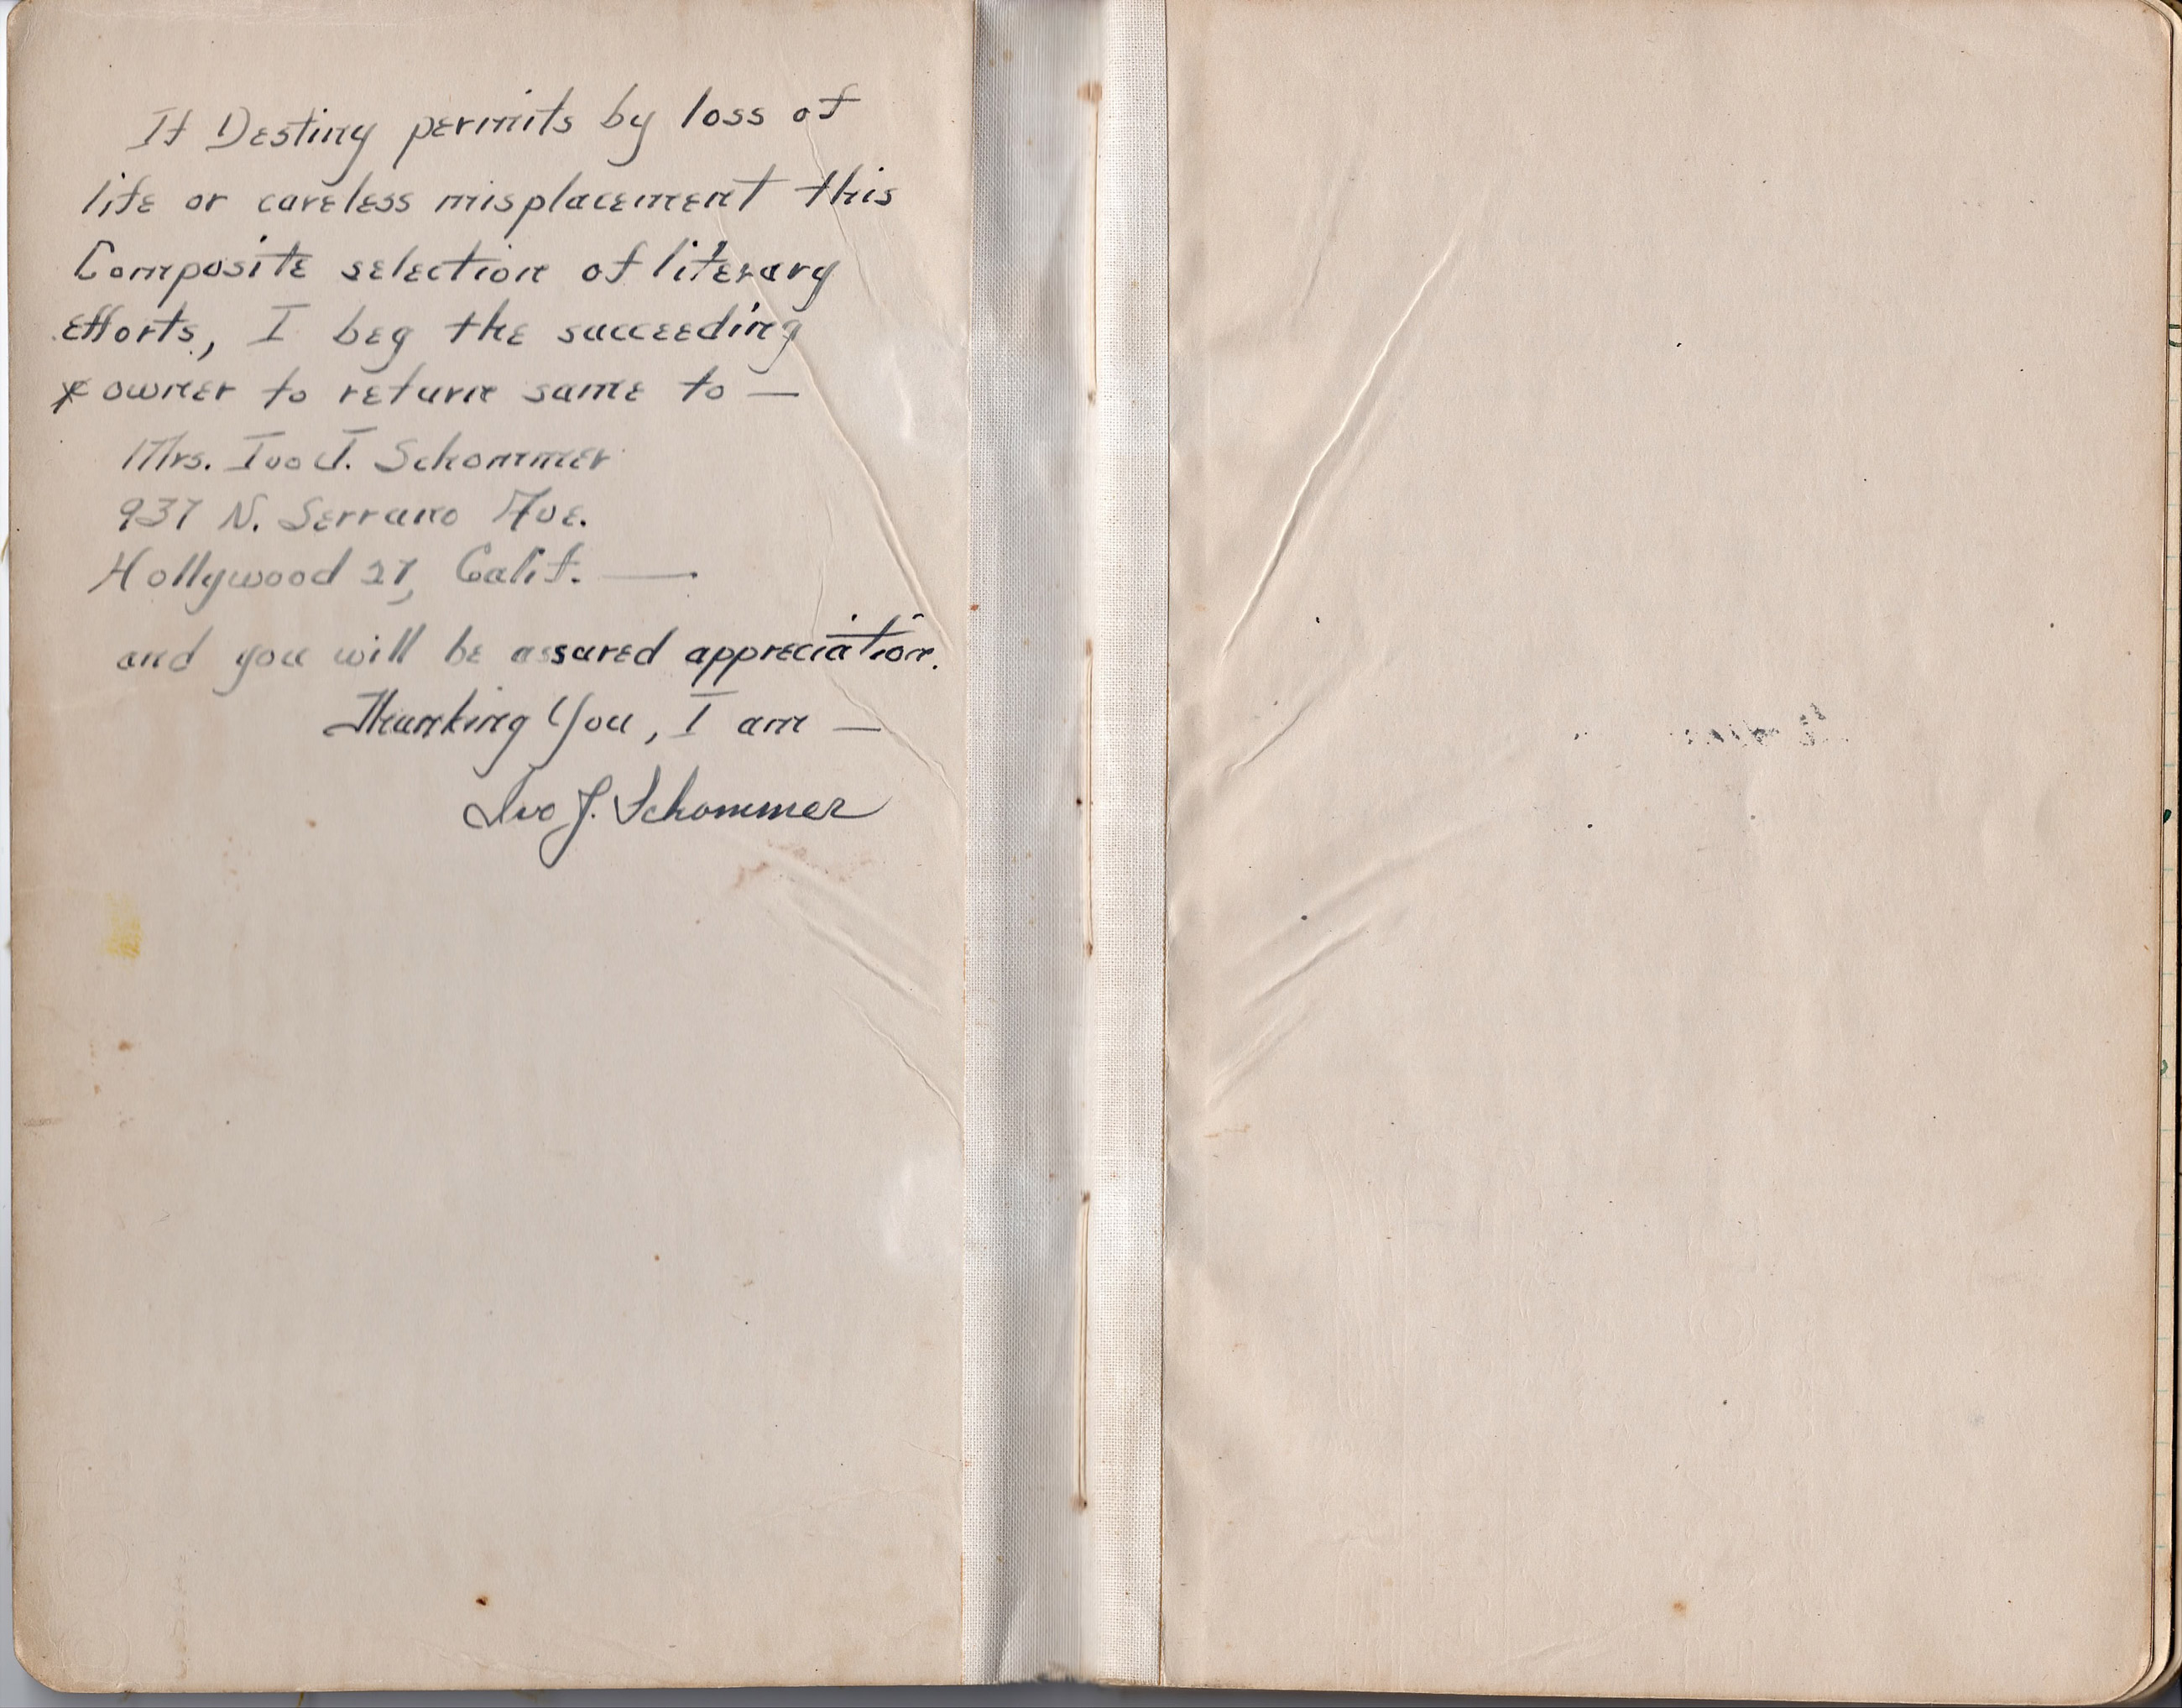 If Destiny permits by loss of
life or careless misplacement this
Composite selection of literary
efforts, I beg the succeeding
* owner to return same to —
Mrs. Ivo J. Schommer
937 N. Serrano Ave.
Hollywood 27, Calif. —
and you will be assured appreciation.
Thanking You, I am —
Ivo J. Schommer